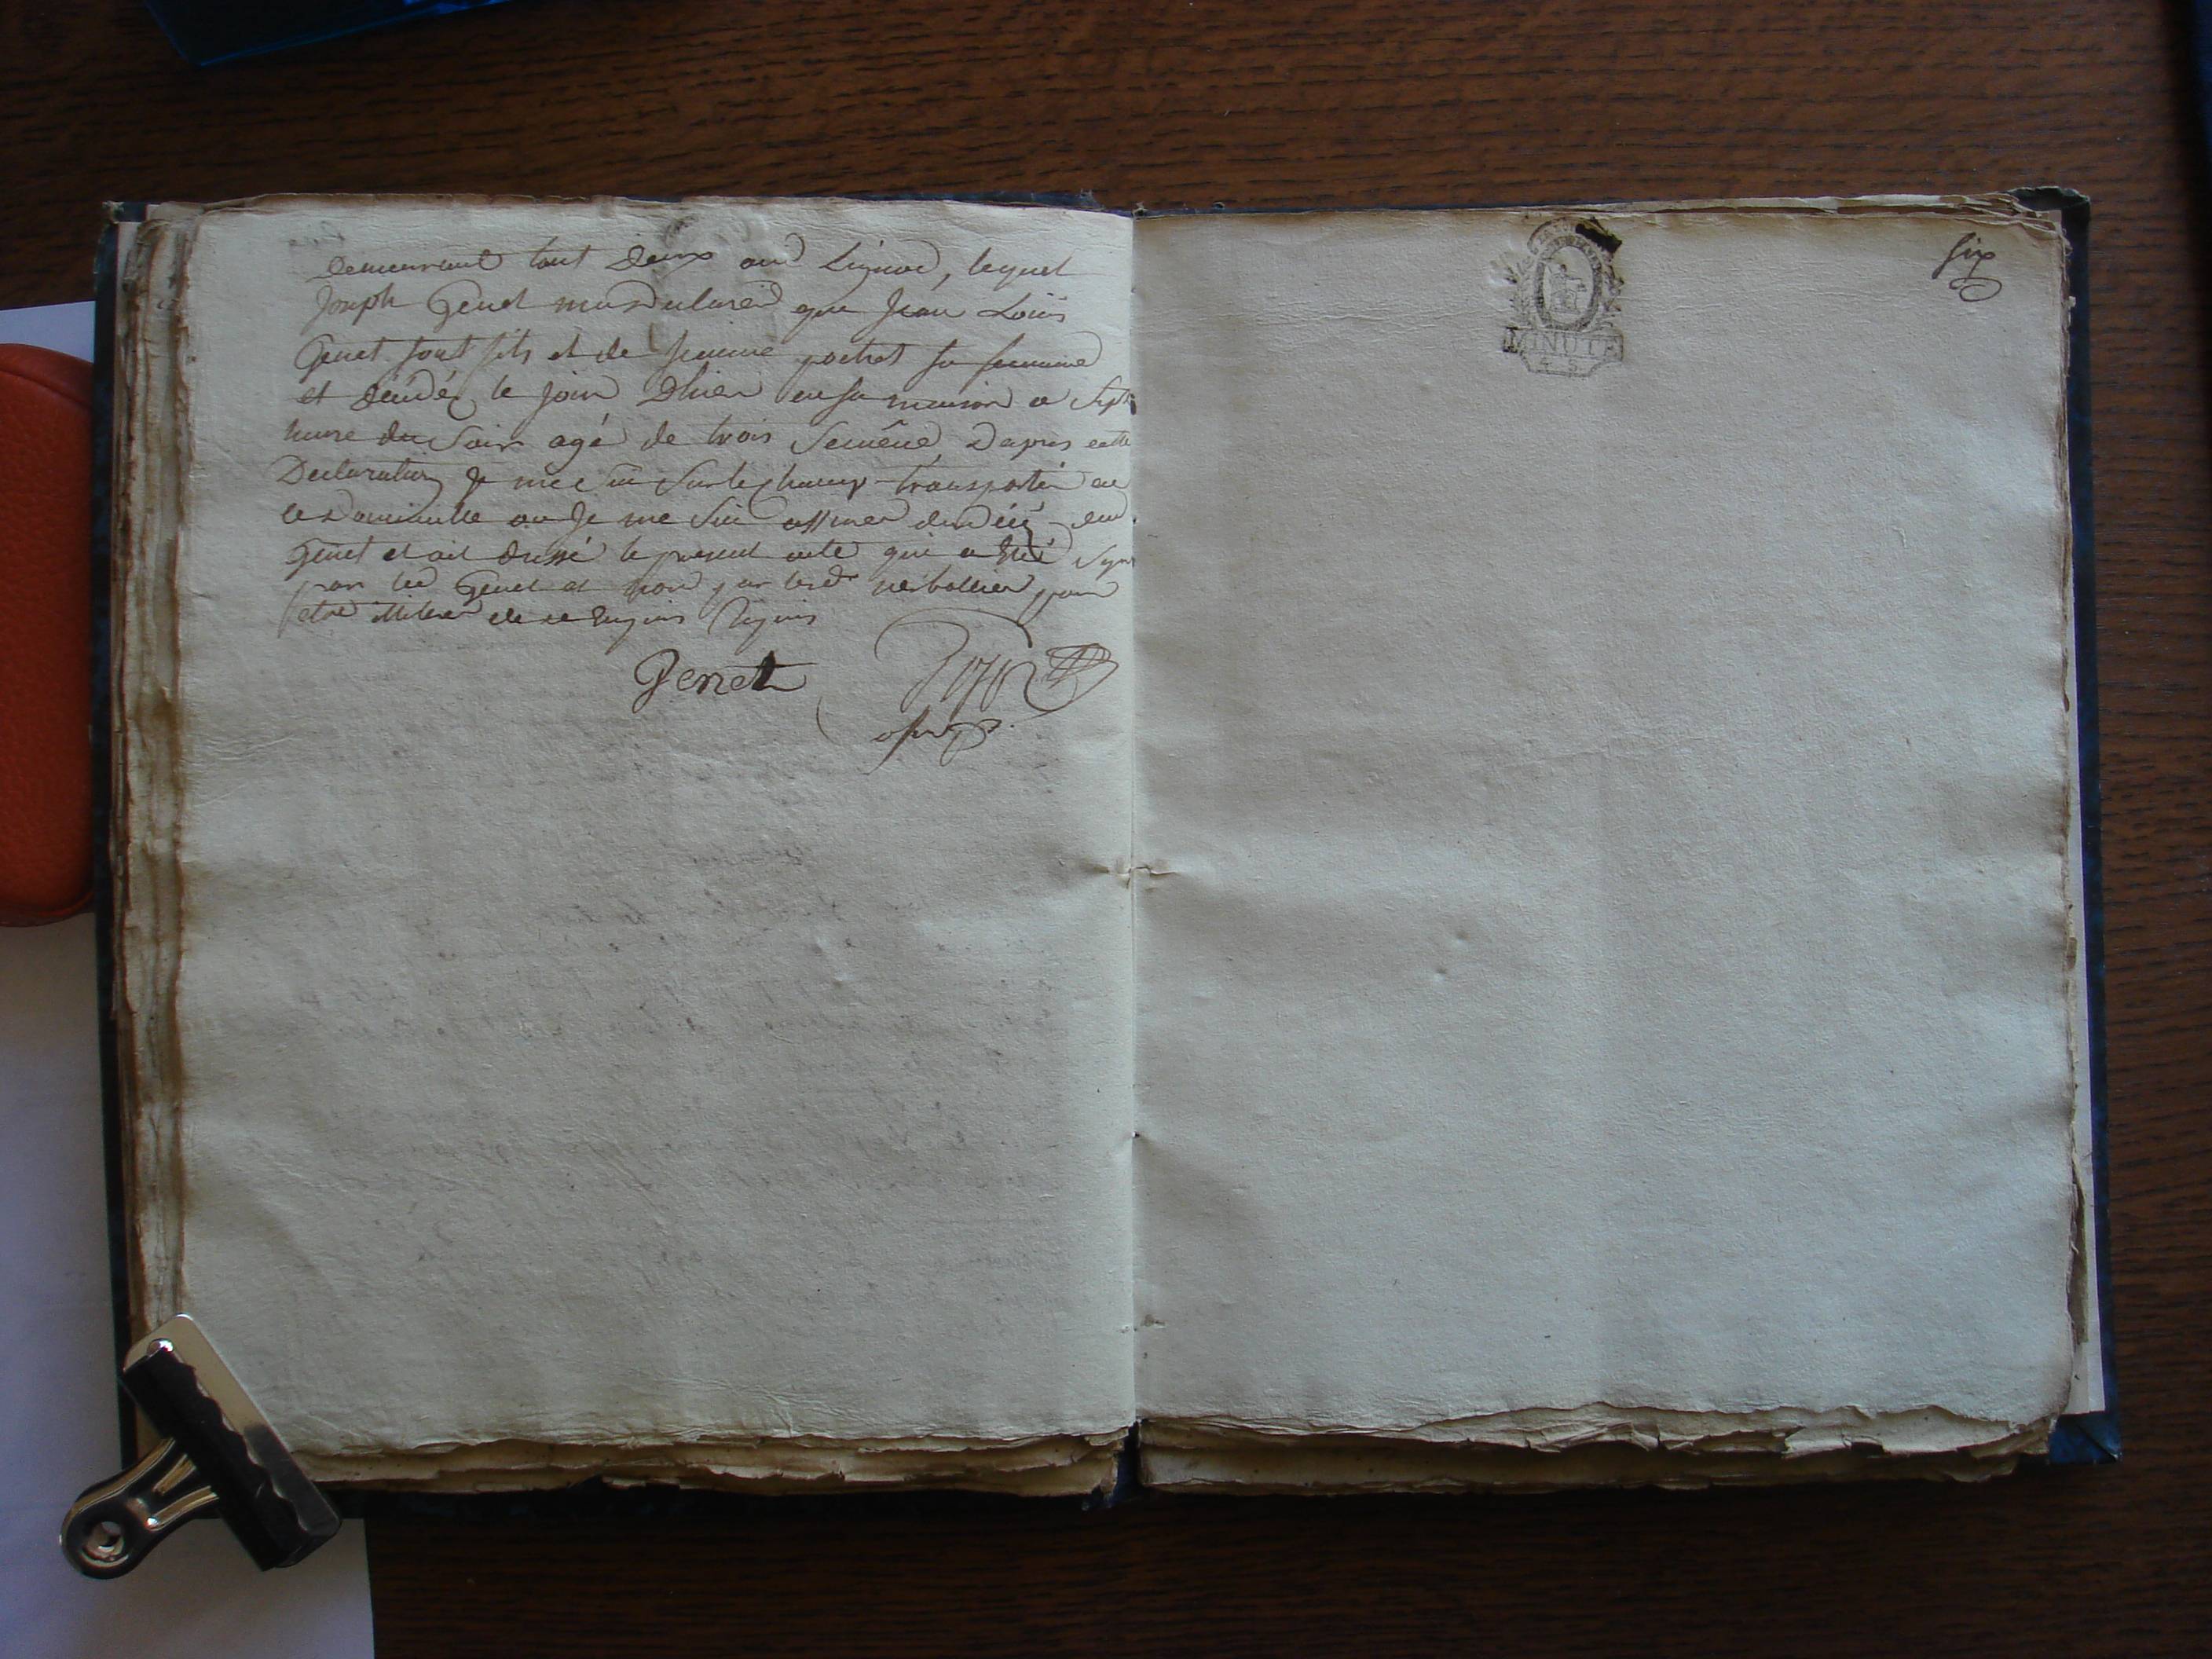 demeurant tout deux aud Lignac, lequel
Joseph Genet mas declareé que Jean Loüis
Genet sont fils et de jeanne sa femme
et décédé le jour Dhier en sa maison a Sept
heure du Soir agé de trois Semêne, Dapres cette
Declaration Je me Sui Sur le champ transporter au
ou Je me Sui assurer dud
Genet et ait dressé le present acte qui a Eté Signé
par led Genet et non par led pour
etre de
Genet
six
MINUTE